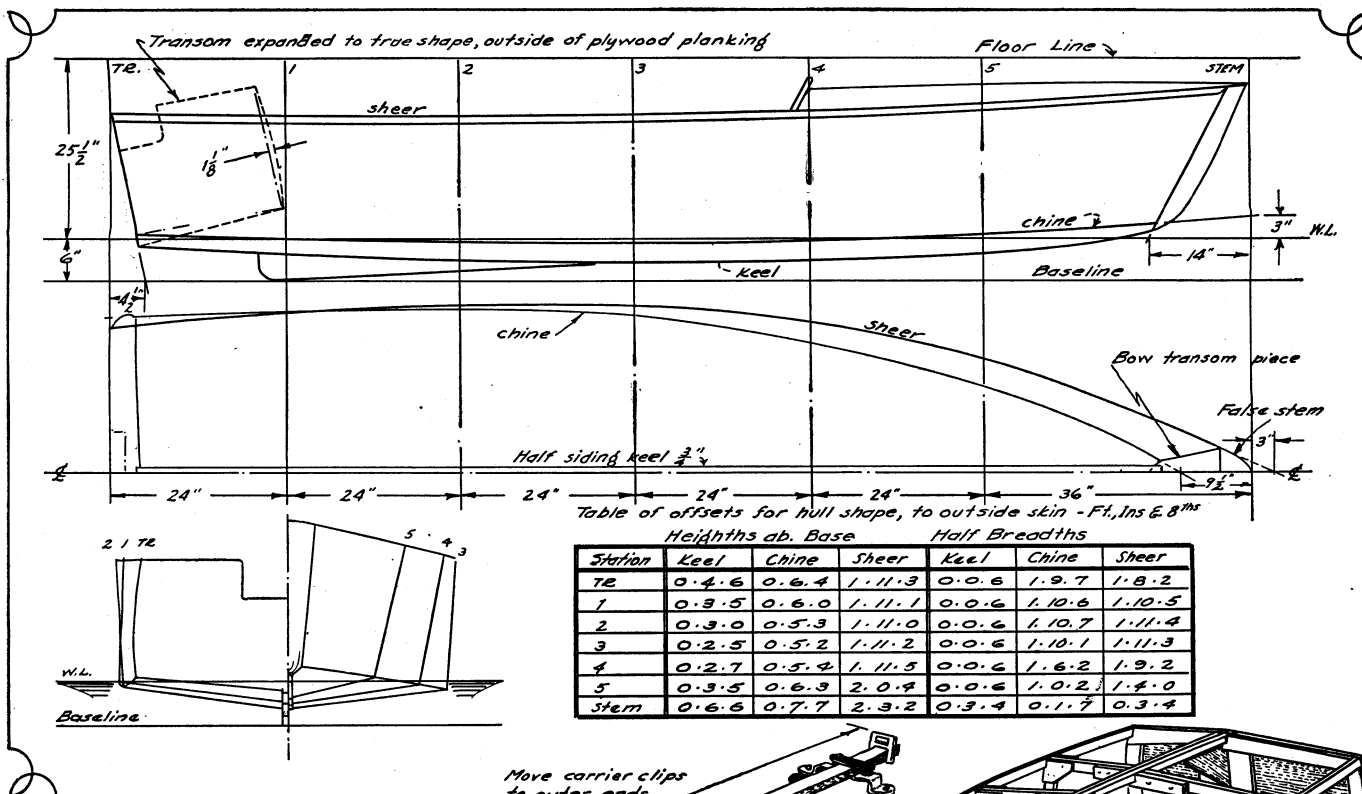 Transom expanded to true shape, outside of plywood planking
Floor Line
TR.
1
2
3
4
5
STEM
sheer
25 1/2"
1 1/8"
chine
3"
W.L.
6"
keel
14"
Baseline
4 1/2"
chine
sheer
Bow transom piece
False stem
3"
Half siding keel 3/4"
℄
℄
9 1/2"
24"
24"
24"
24"
24"
36"
Table of offsets for hull shape, to outside skin - Ft., Ins & 8ths
Heighths ab. Base
Half Breadths
Station Keel Chine Sheer Keel Chine Sheer
TR 0.4.6 0.6.4 1.11.3 0.0.6 1.9.7 1.8.2
1 0.3.5 0.6.0 1.11.1 0.0.6 1.10.6 1.10.5
2 0.3.0 0.5.3 1.11.0 0.0.6 1.10.7 1.11.4
3 0.2.5 0.5.2 1.11.2 0.0.6 1.10.1 1.11.3
4 0.2.7 0.5.4 1.11.5 0.0.6 1.6.2 1.9.2
5 0.3.5 0.6.3 2.0.4 0.0.6 1.0.2 1.4.0
Stem 0.6.6 0.7.7 2.3.2 0.3.4 0.1.7 0.3.4
2 1 TR
5 4 3
W.L.
Baseline
Move carrier clips
to outer ends